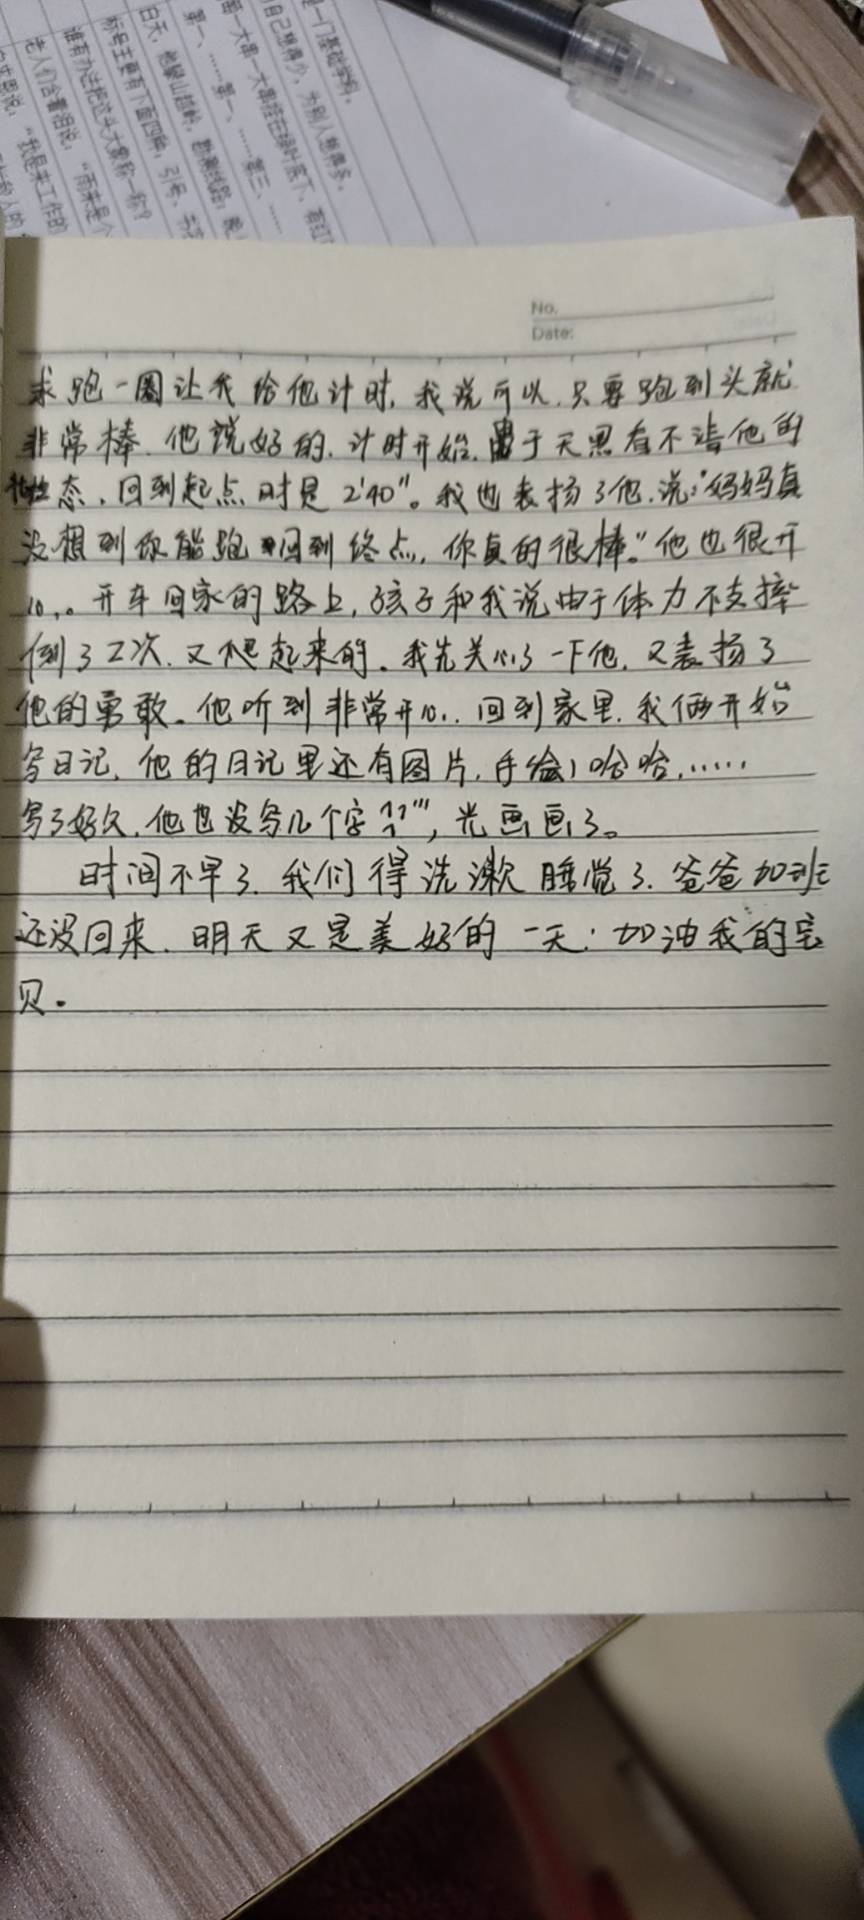 是一门基础学科。
自己想得少，为别人想得多。
第一、……第二、……第三、……
老人们含着泪说：“雨来是个
谁有办法把这头大象称一称？
No.
Date:
求跑一圈让我给他计时，我说可以，只要跑到头就
非常棒。他说好的，计时开始，由于天黑看不清他的
状态，回到起点时是2'40"。我也表扬了他，说：“妈妈真
没想到你能跑回到终点，你真的很棒。”他也很开
心。开车回家的路上，孩子和我说由于体力不支摔
倒了2次，又爬起来的。我先关心了一下他，又表扬了
他的勇敢。他听到非常开心。回到家里，我俩开始
写日记，他的日记里还有图片，手绘，哈哈，……
写了好久，他也没写几个字，光画画了。
时间不早了，我们得洗漱睡觉了，爸爸加班
还没回来，明天又是美好的一天！加油我的宝
贝。